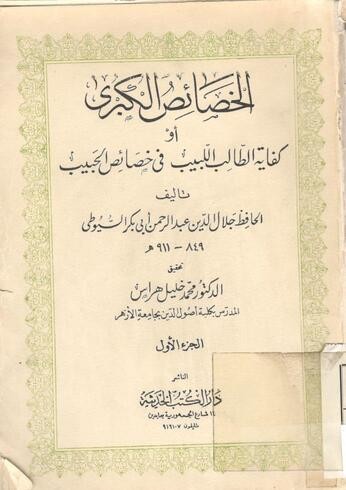 الخصائص الكبرى
أو
كفاية الطالب اللبيب في خصائص الحبيب
تأليف
الحافظ جلال الدين عبد الرحمن أبي بكر السيوطي
٨٤٩ - ٩١١ هـ
تحقيق
الدكتور محمد خليل هراس
المدرس بكلية أصول الدين بجامعة الأزهر
الجزء الأول
الناشر
دار الكتب الحديثة
١٤ شارع الجمهورية بعابدين
تليفون ٩١٦١٠٧